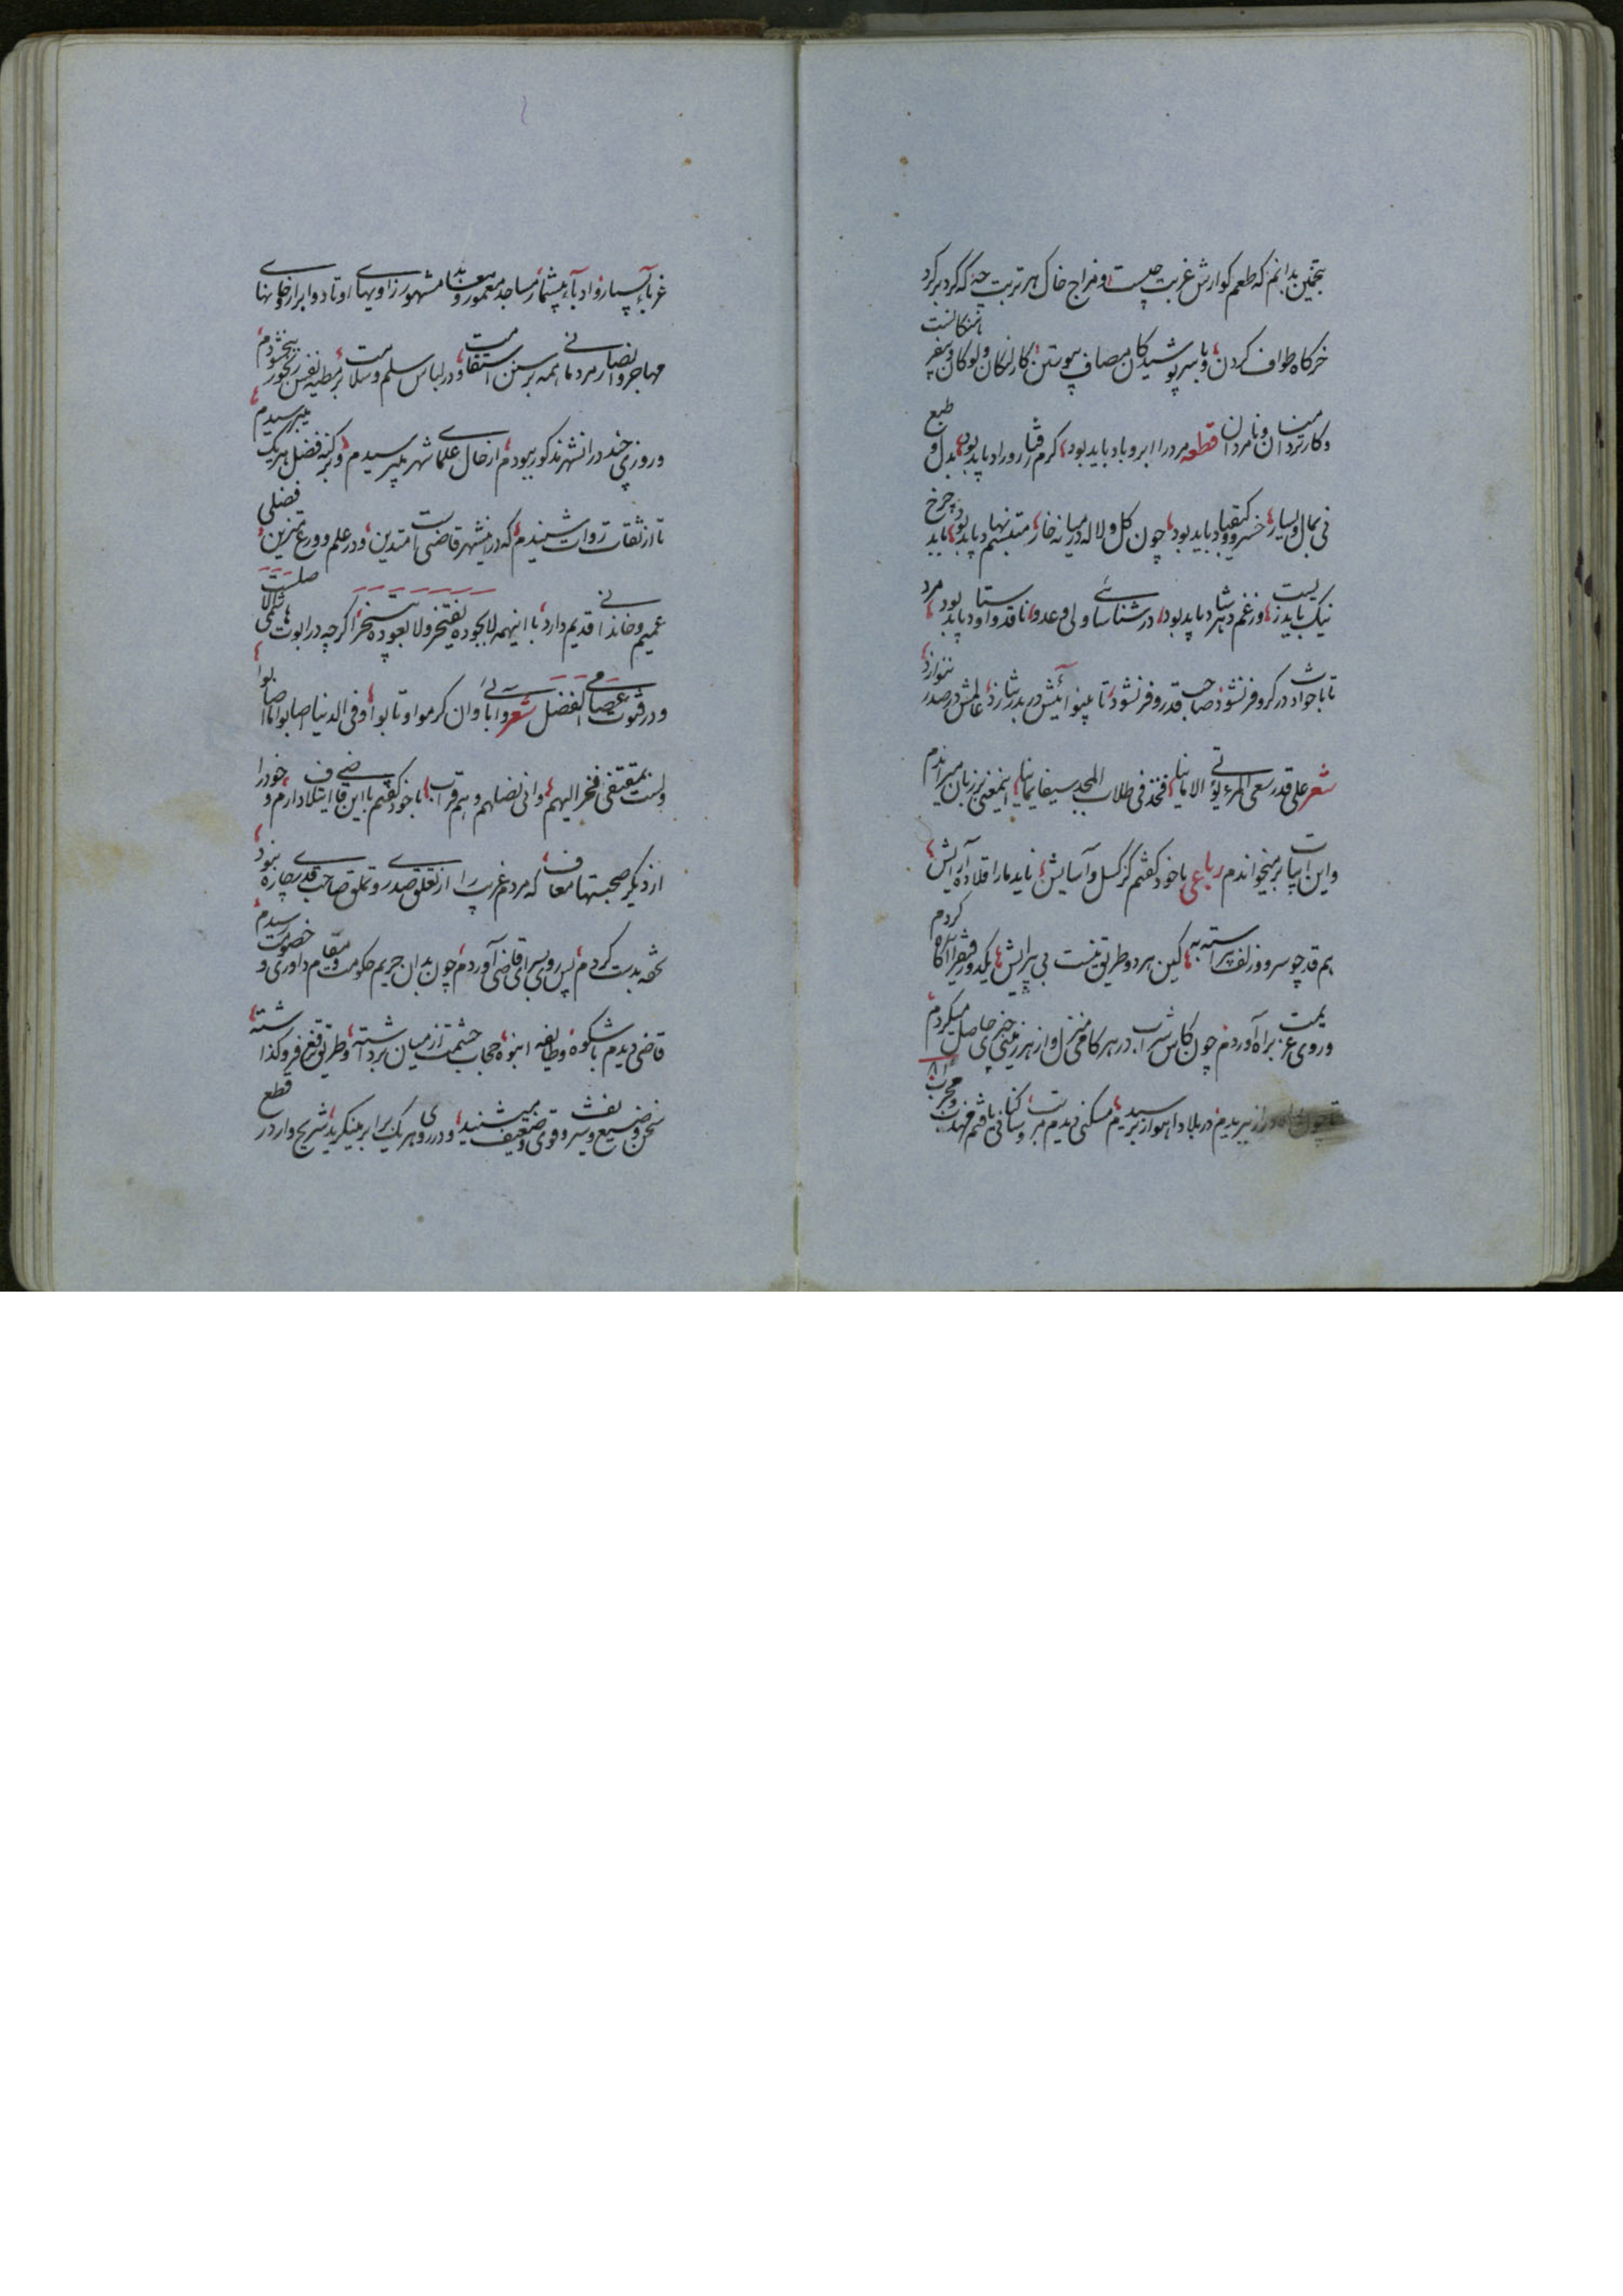 بتخمین بدانم که طعم کوارش غربت چیست و مزاج خاک هر تربت چه که کرد بر کرد
خرکاه طواف کردن و با سر پوشیدکان مصاف پیوستن کار لنکان و لوکان و سفر
وکار مردان و نامردان قطعه مرد را ابر و باد باید بود کرم رفتار و راد باید بود بدل و طبع
نی بمال و یسار خسرو و کیقباد باید بود چون کل و لاله در میانه خار متبسم نهاد باید بود چرخ
نیک بایدزیست وز غم دهر شاد باید بود در شناسائی ولی و عدو ناقد و اوستاد باید بود مرد
تا با حوادث در کر و فر نشود صاحب قدر و فر نشود تا بینوائیش در بدر نتازد عالمش در صدر ننوازد
شعر علی قدر سعی المرء یؤتی الامانیا فخذ فی طلاب المجد سیفا یمانیا اینمعنی بر زبان میراندم
و این ابیات بر میخواندم رباعی با خود کفتم کز کسل و آسایش ناید ما را قلاده آرایش
هم قد چو سرو و زلف پیراسته به کین هر دو طریق نیست بی پیرایش یکدو رفیق را آکاه کردم
و روی عزیمت براه آوردم چون کاس شراب در هر کامی منزل و از هر زمینی چیزی حاصل میکردم
تا چون از تبریدیم در بلاد اهواز رسیدیم مسکنی دیدم مرتب و سکانی یافتم مهذب و مجرب
غرباء بسیار و ادباء بیشمار مساجد معمور و معابد مشهور زاویهای اوتاد و ابرار و خلوتهای
مهاجر و انصار مردمانی همه بر سنن استقامت و در لباس سلم و سلامت بر مطیه نفس رنجور ببخشودم
و روزی چند در انشهر مذکور ببودم از حال علمای شهر بپرسیدم و بر کنه فضل هر یک میبرسیدم
تا از ثقات روات شنیدم که در اینشهر قاضی است متدین و در علم و ورع متزین فضلی
عمیم و خاندانی قدیم دارد با اینهمه لا بجوده یفتخر و لا بعوده یستخر اکرچه در ابوت صلت هاشمی الا
و در فتوت عصامی الفضل شعر و آبائی و ان کرموا و تابوا و فی الدنیا اصابوا ما اصابوا
ولست بمقتفی فخر الیهم وانی نضلهم وهم قراب با خود کفتم با این قاضی ایتلاف دارم و خود را
از دیکر صحبتها معاف که مردم غریب را از تعلق صدری و تملق صاحب قدری چاره نبود
تحفه بدست کردم پس روی بسرای قاضی آوردم چون بدان حریم حکومت و مقام داوری و خصومت رسیدم
قاضی دیدم با شکوه و طایفه انبوه حجاب حشمت از میان برداشته و طریق وقع فروکذاشته
سخن وضیع و سر و قوی و ضعیف میشنید و در روی هر یک برابر مینکرید شریح وار در قطع